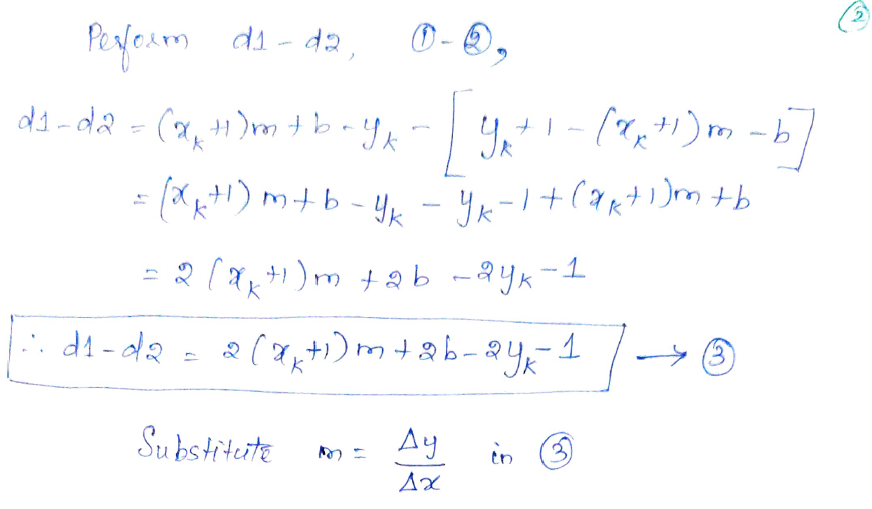 ②
Perform d1 - d2, ① - ②,
d1 - d2 = (xₖ+1)m + b - yₖ - [yₖ + 1 - (xₖ+1)m - b]
= (xₖ+1)m + b - yₖ - yₖ - 1 + (xₖ+1)m + b
= 2(xₖ+1)m + 2b - 2yₖ - 1
∴ d1 - d2 = 2(xₖ+1)m + 2b - 2yₖ - 1 → ③
Substitute m = Δy/Δx in ③